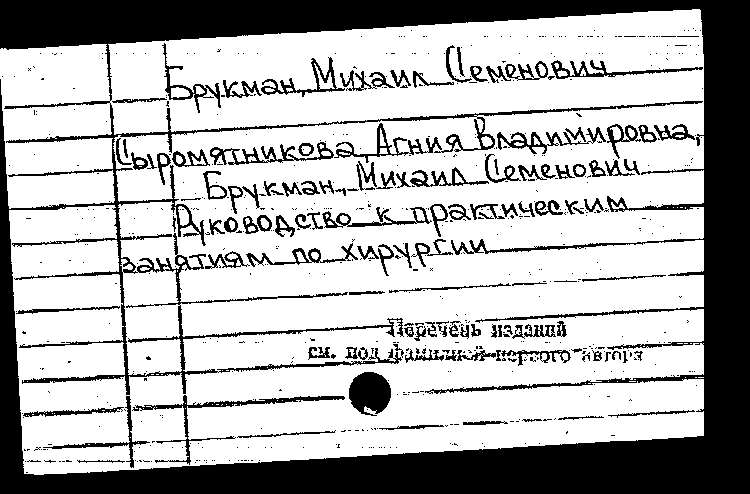 Брукман, Михаил Семенович
Сыромятникова, Агния Владимировна,
Брукман, Михаил Семенович
Руководство к практическим
занятиям по хирургии
Перечень изданий
см. под фамилией первого автора